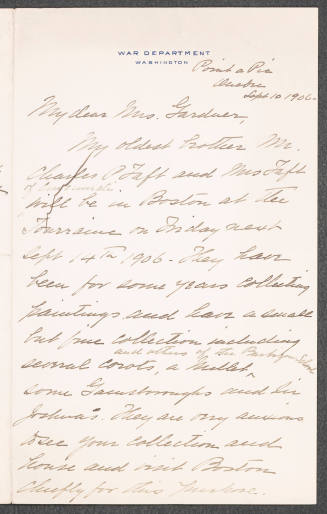 WAR DEPARTMENT
WASHINGTON
Point a Pic
Quebec
Sept 10 1906-
My dear Mrs. Gardner,
My oldest brother Mr.
Charles P Taft and Mrs Taft
of Cincinnati
will be in Boston at the
Touraine on Friday next
Sept 14th 1906- They have
been for some years collecting
paintings and have a small
but fine collection including
and others of the Barbizon School
several Corots, a Millet,
some Gainsboroughs and Sir
Joshua's. They are very anxious
to see your collection and
house and visit Boston
chiefly for this purpose.